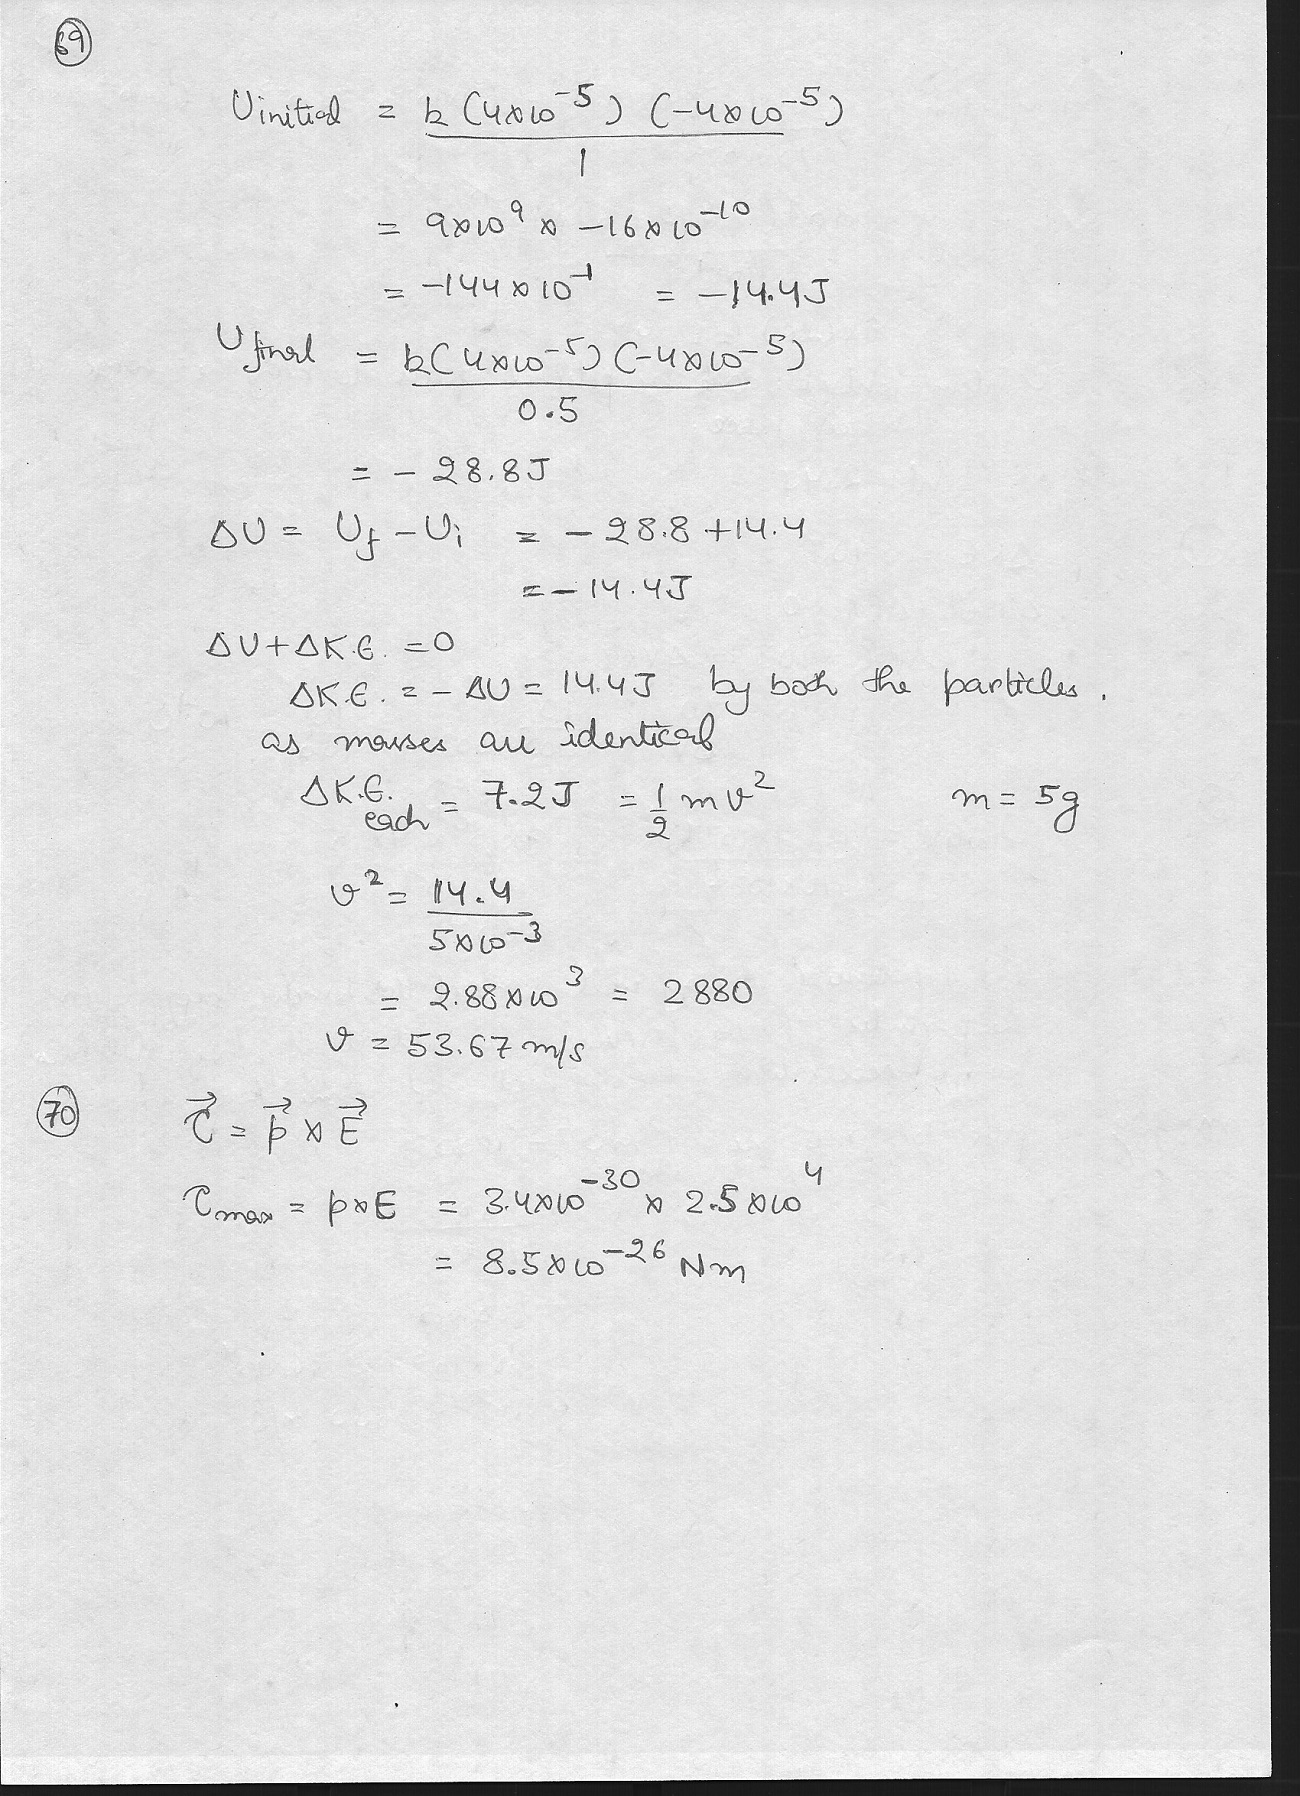 69
U initial = k (4×10⁻⁵) (-4×10⁻⁵)
1
= 9×10⁹ × -16×10⁻¹⁰
= -144×10⁻¹ = -14.4J
U final = k(4×10⁻⁵) (-4×10⁻⁵)
0.5
= - 28.8J
ΔU = Uf - Ui = - 28.8 + 14.4
= - 14.4J
ΔU + ΔK.E. = 0
ΔK.E. = - ΔU = 14.4J by both the particles.
as masses are identical
ΔK.E. each = 7.2J = 1/2 m v² m = 5g
v² = 14.4
5×10⁻³
= 2.88×10³ = 2880
v = 53.67 m/s
70 τ⃗ = p⃗ × E⃗
τmax = p×E = 3.4×10⁻³⁰ × 2.5×10⁴
= 8.5×10⁻²⁶ Nm